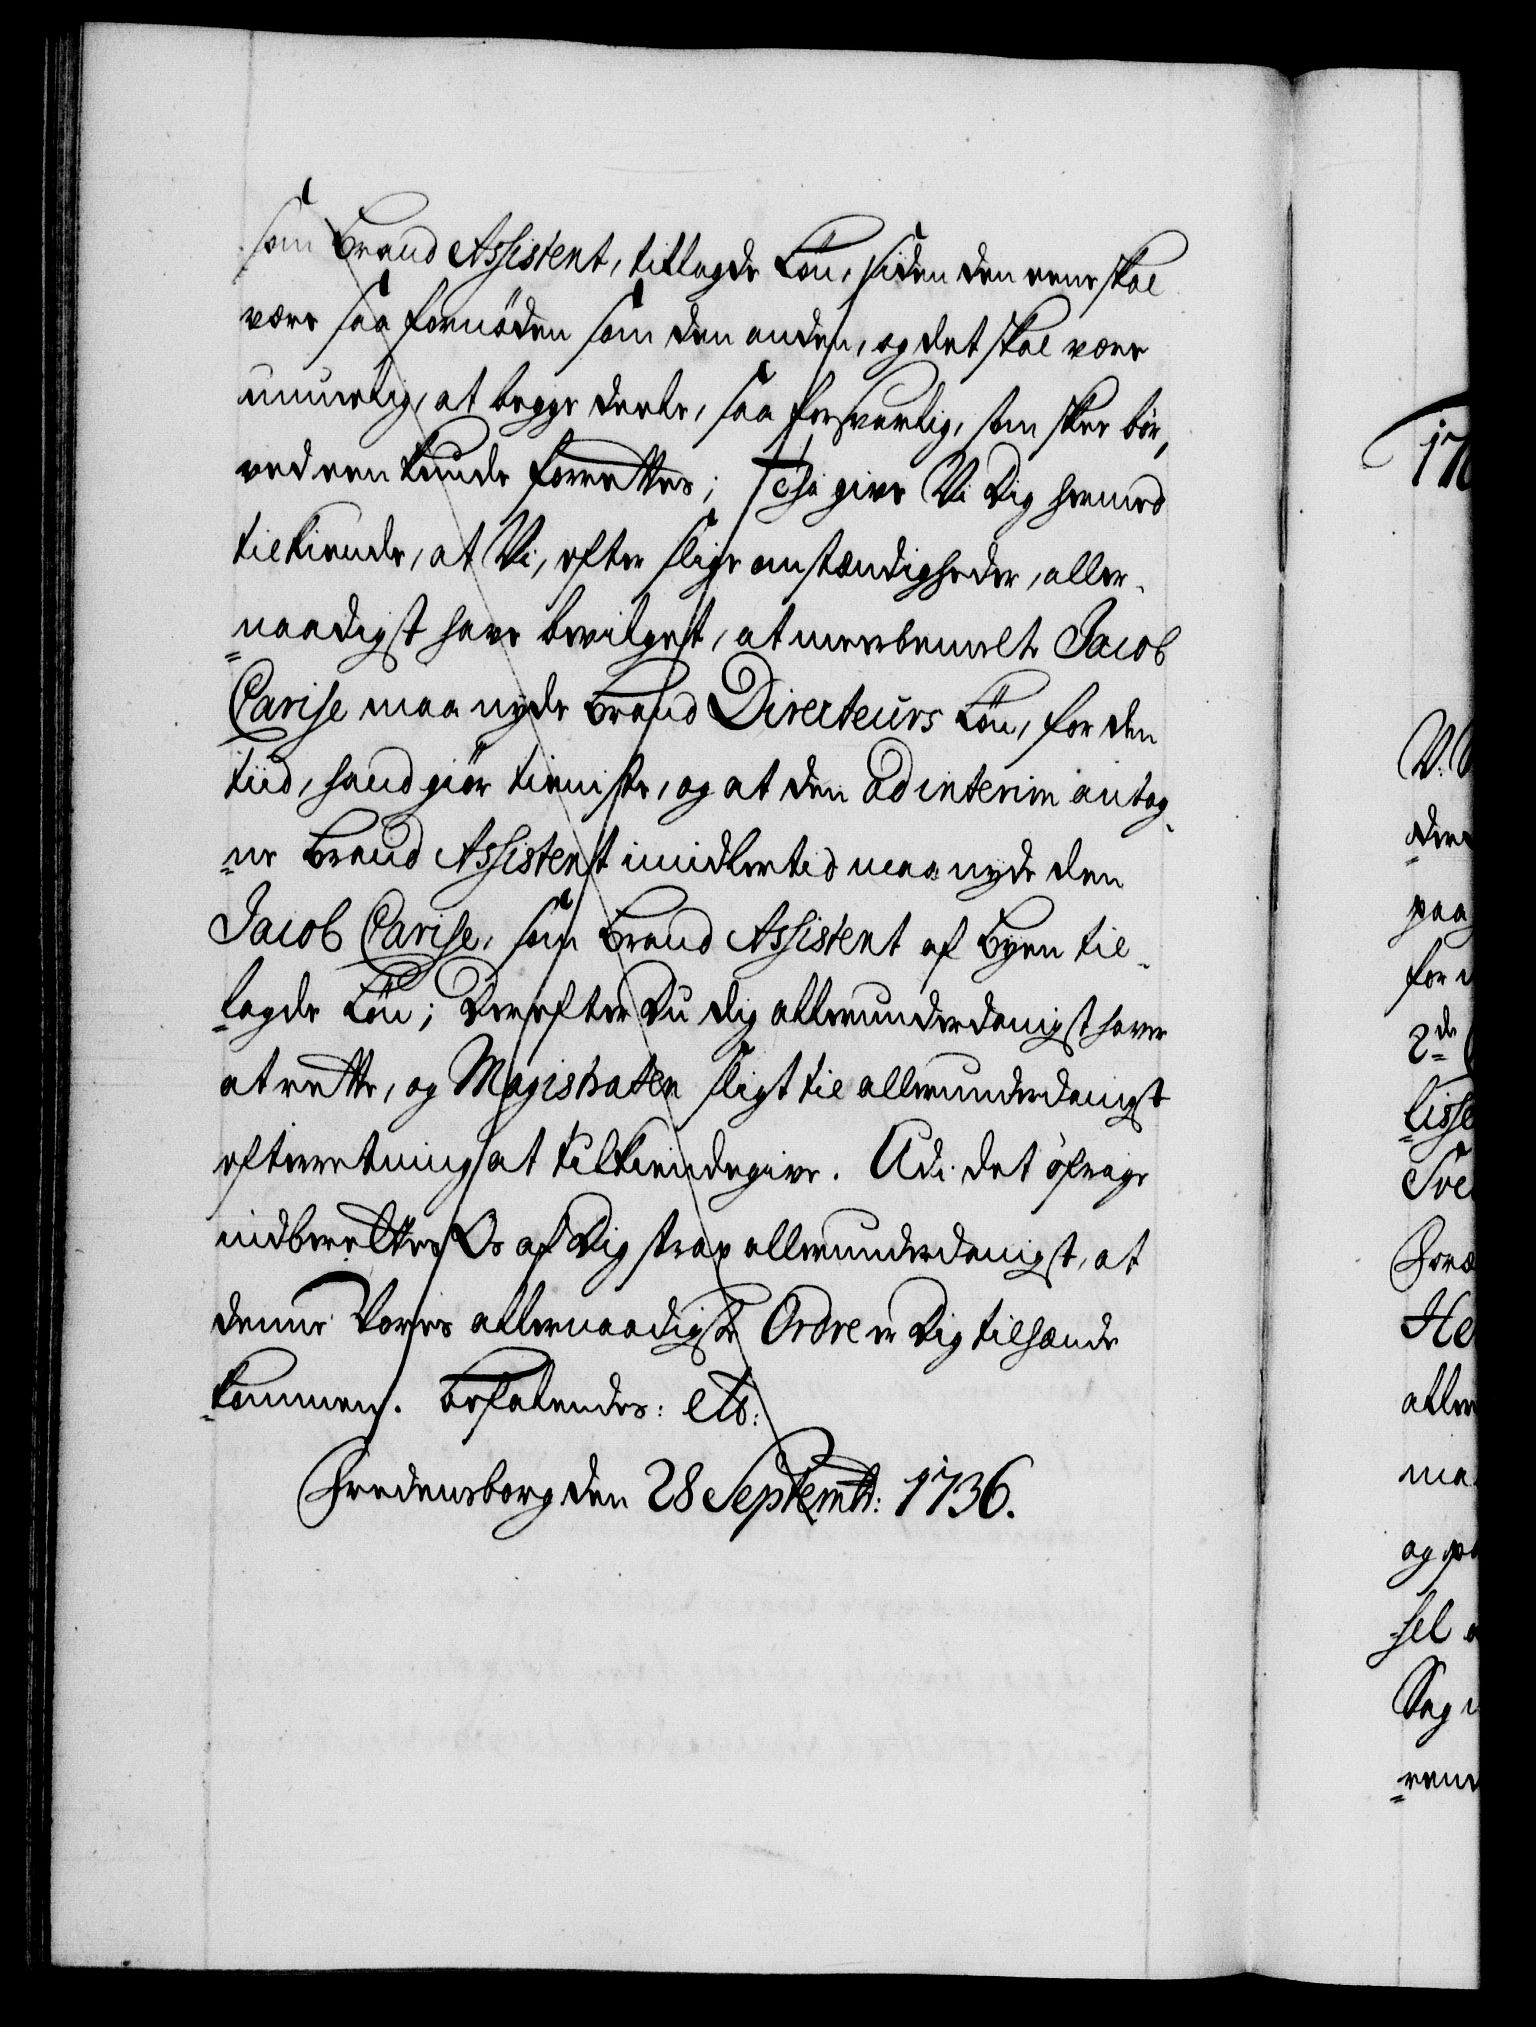 som Brand Assistent, tillagde Løn, siden den eene skal
være saa fornöden som den anden, og det skal være
umuelig, at begge deele, saa forsvarlig, som skee bør,
ved een kunde forrettes; Saa give Vi Dig hermed
tilkiende, at Vi, efter slige omstændigheder, aller-
naadigst have bevilget, at meerbemelte Jacob
Carise maa nyde Brand Directeurs Løn, for den
tiid, hand giør tieniste, og at den ad interim antag-
ne Brand Assistent imidlertid maa nyde den
Jacob Carise, som Brand Assistent af Byen til-
lagde Løn; Derefter Du dig allerunderdanigst haver
at rette, og Magistraten sligt til allerunderdanigst
efterretning at tilkiendegive. Udi det øfrige
indberettes Os af Dig strax allerunderdanigst, at
denne Vores allernaadigste Ordre er Dig tilhænde
kommen. Befalendes: etc:
Fredensborg den 28 Septembr: 1736.
V:
paa
for
2de
lisse
He
aller
ma
og
sel
Sag